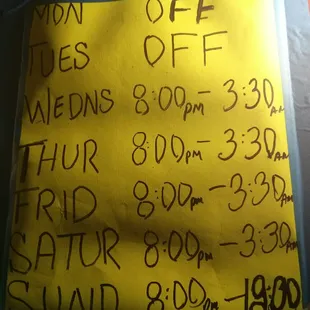 MON OFF
TUES OFF
WEDNS 8:00PM - 3:30AM
THUR 8:00PM - 3:30AM
FRID 8:00PM - 3:30AM
SATUR 8:00PM - 3:30AM
SUND 8:00PM -